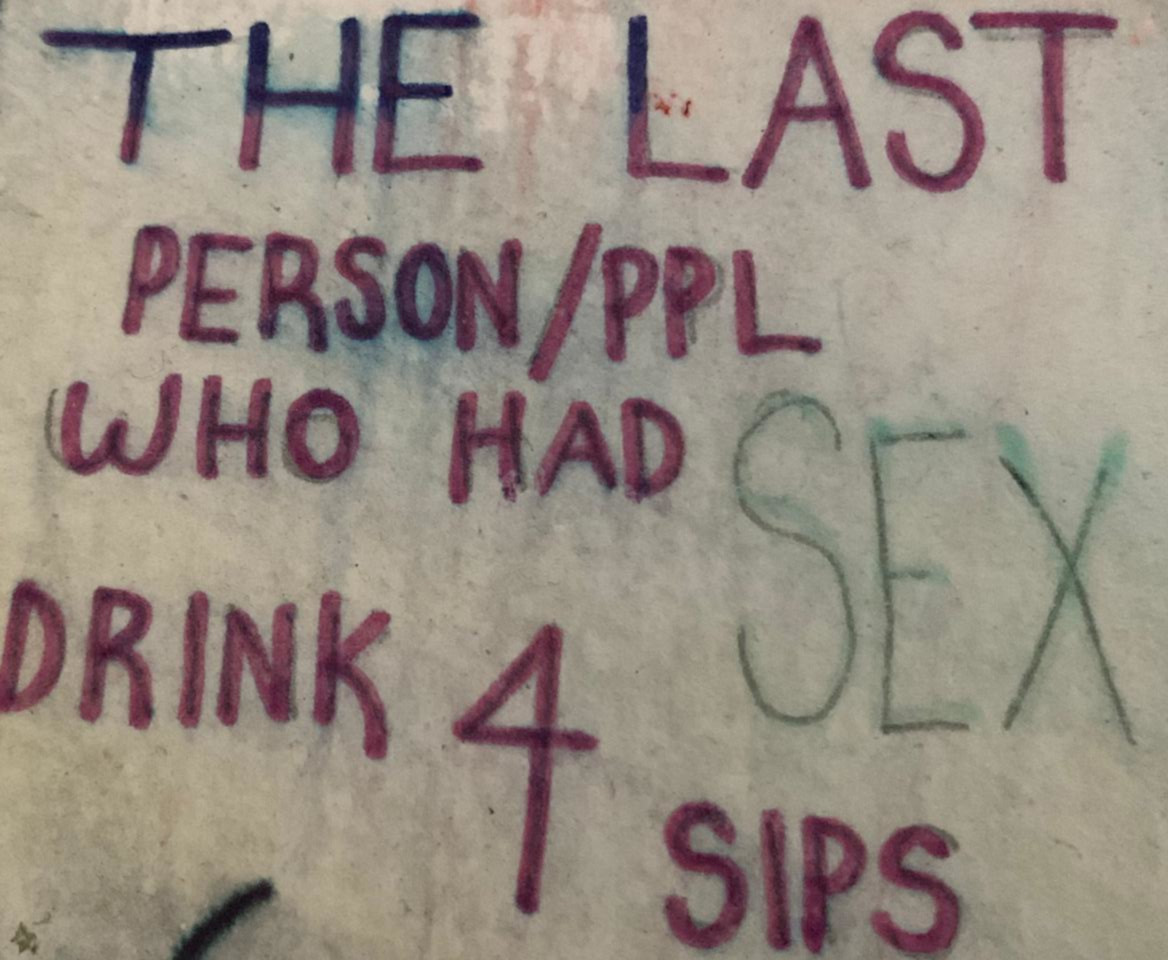 THE LAST
PERSON/PPL
WHO HAD SEX
DRINK 4
SIPS